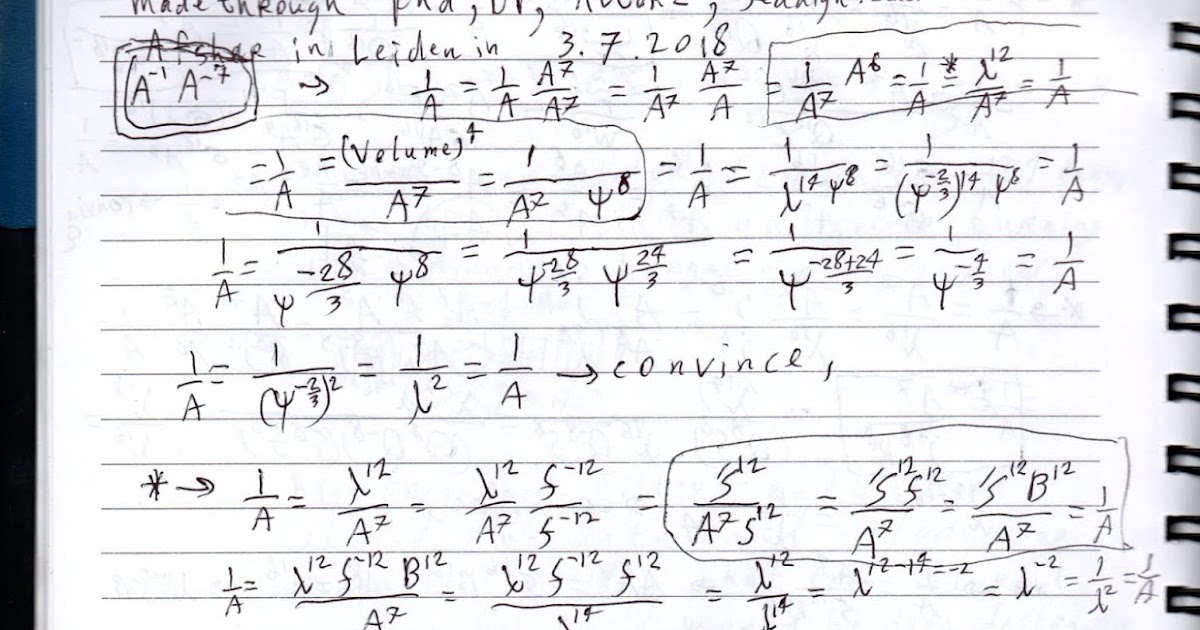 made through phd, Dr,
Afshar in Leiden in 3.7.2018
A⁻¹ A⁻⁷ → 1/A = 1/A A⁷/A⁷ = 1/A⁷ A⁷/A = 1/A⁷ A⁶ = 1/A *= λ¹²/A⁷ = 1/A
= 1/A = (Volume)⁴/A⁷ = 1/(A⁷ ψ⁸) = 1/A = 1/(λ¹⁴ ψ⁸) = 1/((ψ^(-2/3))¹⁴ ψ⁸) = 1/A
1/A = 1/(ψ^(-28/3) ψ⁸) = 1/(ψ^(-28/3) ψ^(24/3)) = 1/ψ^((-28+24)/3) = 1/ψ^(-4/3) = 1/A
1/A = 1/(ψ^(-2/3))² = 1/λ² = 1/A → convince,
* → 1/A = λ¹²/A⁷ = λ¹²/A⁷ f⁻¹²/f⁻¹² = S¹²/(A⁷ S¹²) = S¹² f¹²/A⁷ = S¹² B¹²/A⁷ = 1/A
1/A = λ¹² f⁻¹² B¹²/A⁷ = λ¹² f⁻¹² f¹²/λ¹⁴ = λ¹²/λ¹⁴ = λ¹²⁻¹⁴⁼⁻² = λ⁻² = 1/λ² = 1/A